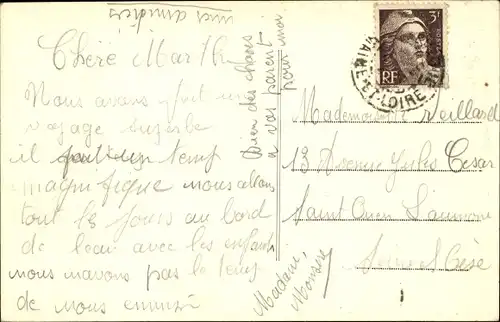 mes amitiés
Chère Marthe
Nous avons fait un
voyage superbe
il fait un temp
magnifique nous allons
tout les jours au bord
de leau avec les enfants
nous navons pas le temp
de nous ennuié
bien des choses
a vos parent
pour moi
Madame,
Monsieur
Mademoiselle Veillard
13 Avenue Jules César
Saint Ouen L'aumone
Seine et Oise
3F
RF
ET LOIRE